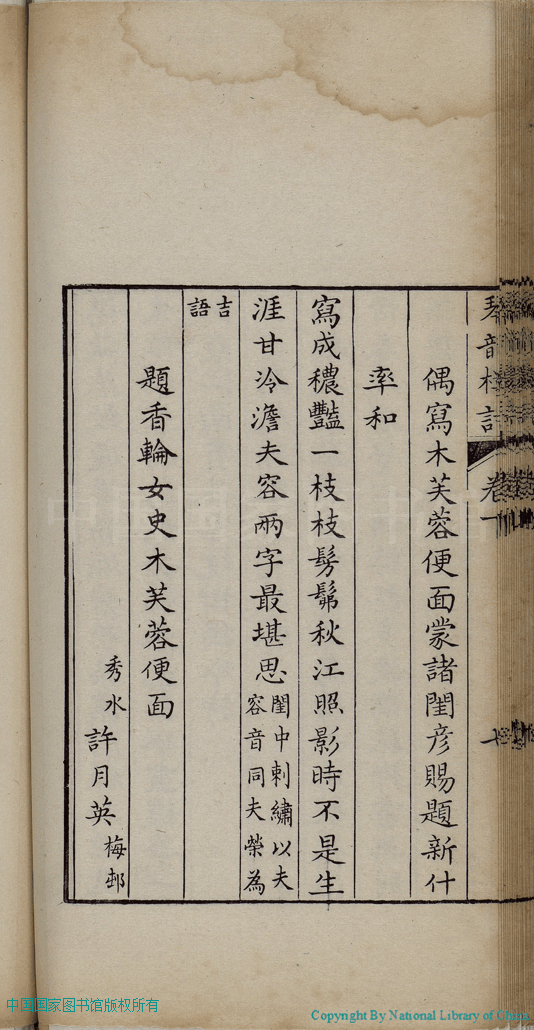 卷一
偶寫木芙蓉便面蒙諸閨彥賜題新什
率和
寫成穠豔一枝枝髣髴秋江照影時不是生
涯甘冷澹夫容兩字最堪思
閨中刺繡以夫
容音同夫榮為
吉
語
題香輪女史木芙蓉便面
秀水許月英梅邨
中国国家图书馆版权所有
Copyright By National Library of China